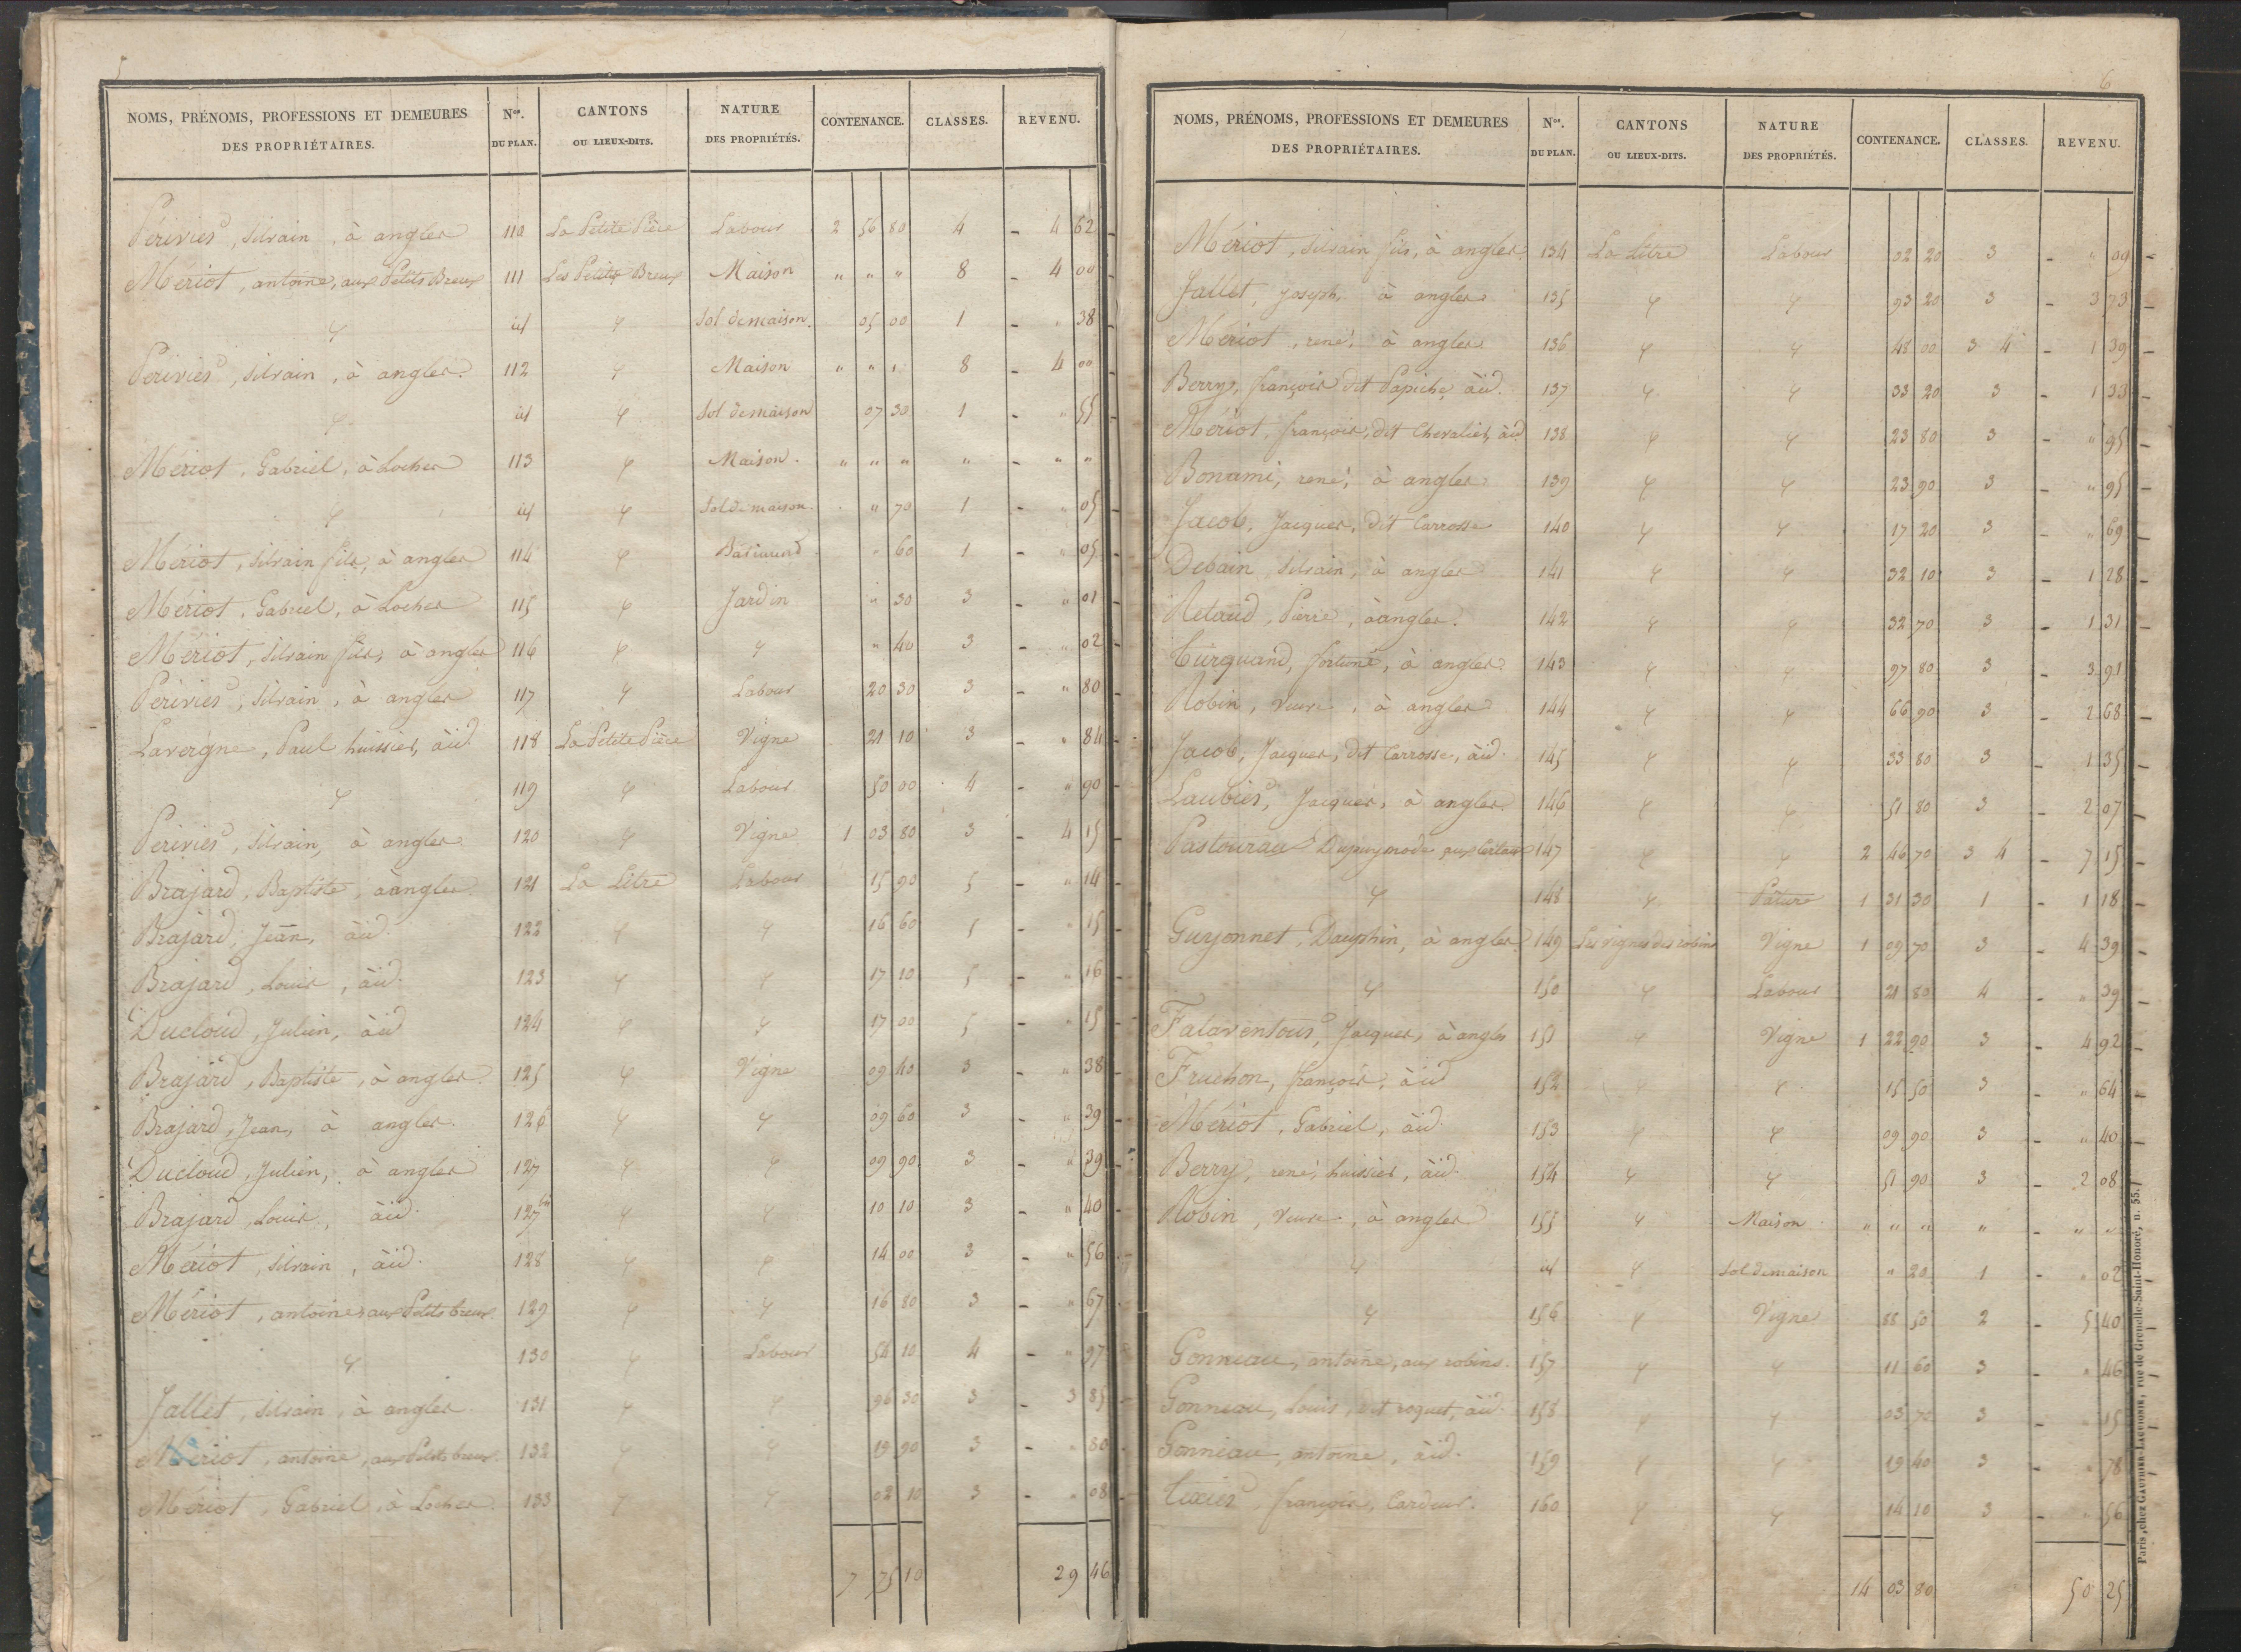 5
NOMS, PRÉNOMS, PROFESSIONS ET DEMEURES DES PROPRIÉTAIRES. Nos. DU PLAN. CANTONS OU LIEUX-DITS. NATURE DES PROPRIÉTÉS. CONTENANCE. CLASSES. REVENU.
Périvier, Silvain, à angles 110 La Petite Pièce Labour 2 56 80 4 - 4 62
Mériot, antoine, aux Petits Breux 111 Les Petits Breux Maison " " " 8 - 4 00
φ id φ Sol de maison 05 00 1 - " 38
Périvier, Silvain, à angles 112 φ Maison " " " 8 - 4 00
φ id φ Sol de maison 07 30 1 - " 55
Mériot, Gabriel, à Loches 113 φ Maison " " " " - " "
φ id φ Sol de maison " 70 1 - " 05
Mériot, Silvain fils, à angles 114 φ Batiment " 60 1 - " 05
Mériot, Gabriel, à Loches 115 φ Jardin " 30 3 - " 01
Mériot, Silvain fils, à angles 116 φ φ " 40 3 - " 02
Périvier, Silvain, à angles 117 φ Labour 20 30 3 - " 80
Lavergne, Paul huissier, àid. 118 La Petite Pièce Vigne 21 10 3 - " 84
φ 119 φ Labour 50 00 4 - " 90
Périvier, Silvain, à angles 120 φ Vigne 1 03 80 3 - 4 15
Brajard, Baptiste, à angles 121 La Litre Labour 15 90 5 - " 14
Brajard, Jean, àid. 122 φ φ 16 60 5 - " 15
Brajard, Louis, àid. 123 φ φ 17 10 5 - " 16
Ducloud, Julien, àid 124 φ φ 17 00 5 - " 15
Brajard, Baptiste, à angles 125 φ Vigne 09 40 3 - " 38
Brajard, Jean, à angles. 126 φ φ 09 60 3 - " 39
Ducloud, Julien, à angles 127 φ φ 09 90 3 - " 39
Brajard, Louis, àid. 127 bis φ φ 10 10 3 - " 40
Mériot, Silvain, àid. 128 φ φ 14 00 3 - " 56
Mériot, antoine, aux Petits breux 129 φ φ 16 80 3 - " 67
φ 130 φ Labour 54 10 4 - " 97
Jallet, Silvain, à angles 131 φ φ 96 30 3 - 3 85
Mériot, antoine, aux Petits breux. 132 φ φ 19 90 3 - " 80
Mériot, Gabriel, à Loches 133 φ φ 02 10 3 - " 08
7 75 10 29 46
6
NOMS, PRÉNOMS, PROFESSIONS ET DEMEURES DES PROPRIÉTAIRES. Nos. DU PLAN. CANTONS OU LIEUX-DITS. NATURE DES PROPRIÉTÉS. CONTENANCE. CLASSES. REVENU.
Mériot, Silvain fils, à angles 134 La Litre Labour 02 20 3 - " 09
Jallet, Joseph, à angles 135 φ φ 93 20 3 - 3 73
Mériot, rené, à angles 136 φ φ 48 00 3 4 - 1 39
Berry, françois dit Papiche, àid. 137 φ φ 33 20 3 - 1 33
Mériot, françois, dit Chevalier, àid 138 φ φ 23 80 3 - " 95
Bonami, rené, à angles 139 φ φ 23 90 3 - " 95
Jacob, Jacques, dit Carrosse 140 φ φ 17 20 3 - " 69
Debain, Silvain, à angles 141 φ φ 32 10 3 - 1 28
Retaud, Pierre, à angles. 142 φ φ 32 70 3 - 1 31
Turquand, fortuné, à angles 143 φ φ 97 80 3 - 3 91
Robin, Veuve, à angles 144 φ φ 66 90 3 - 2 68
Jacob, Jacques, dit Carrosse, àid. 145 φ φ 33 80 3 - 1 35
Laubier, Jacques, à angles 146 φ φ 51 80 3 - 2 07
Pastoureau Dupuymode 147 φ φ 2 46 70 3 4 - 7 15
φ 148 φ Pature 1 31 30 1 - 1 18
Guyonnet, Dauphin, à angles 149 Les vignes des robins Vigne 1 09 70 3 - 4 39
φ 150 φ Labour 21 80 4 - " 39
Falaventour, Jacques, à angles 151 φ Vigne 1 22 90 3 - 4 92
Fruchon, françois, àid 152 φ φ 15 50 3 - " 64
Mériot, Gabriel, àid. 153 φ φ 09 90 3 - " 40
Berry, rené, huissier, àid. 154 φ φ 51 90 3 - 2 08
Robin, Veuve, à angles 155 φ Maison " " " " - " "
φ id φ Sol de maison " 20 1 - " 02
φ 156 φ Vigne 88 50 2 - 5 40
Gonneau, antoine, aux robins. 157 φ φ 11 60 3 - " 46
Gonneau, Louis, dit roquet, àid. 158 φ φ 03 70 3 - " 15
Gonneau, antoine, àid. 159 φ φ 19 40 3 - " 78
Tixier, françois, Cardeur. 160 φ φ 14 10 3 - " 56
14 03 80 50 25
Paris, chez GAUTHIER-LAGUIONIE, rue de Grenelle-Saint-Honoré, n. 55.